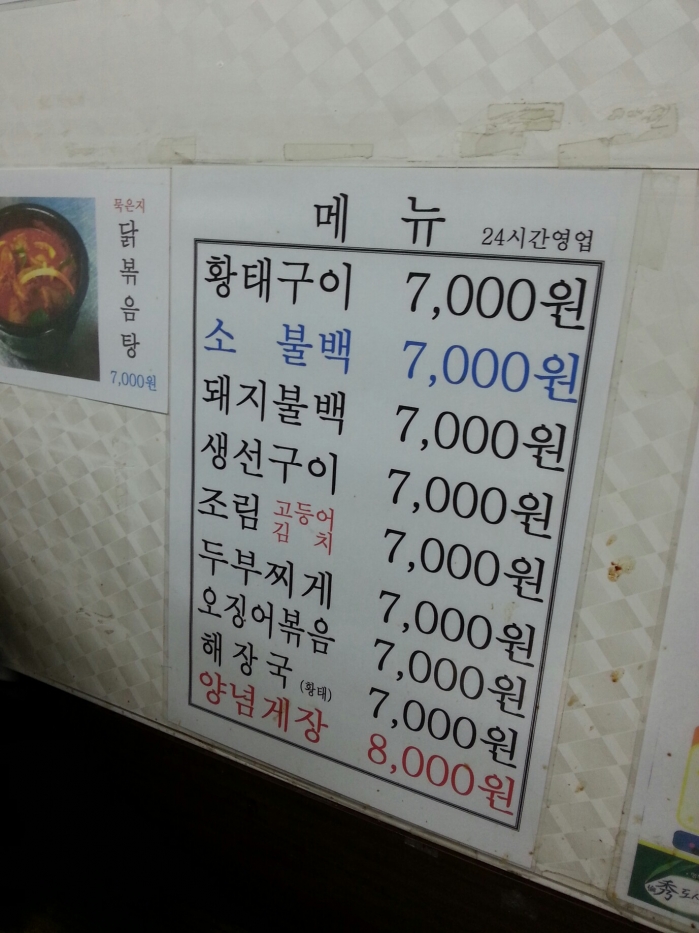 묵은지
닭볶음탕
7,000원
메 뉴 24시간영업
황태구이 7,000원
소 불백 7,000원
돼지불백 7,000원
생선구이 7,000원
조림 고등어 김치 7,000원
두부찌게 7,000원
오징어볶음 7,000원
해장국 (황태) 7,000원
양념게장 8,000원
秀